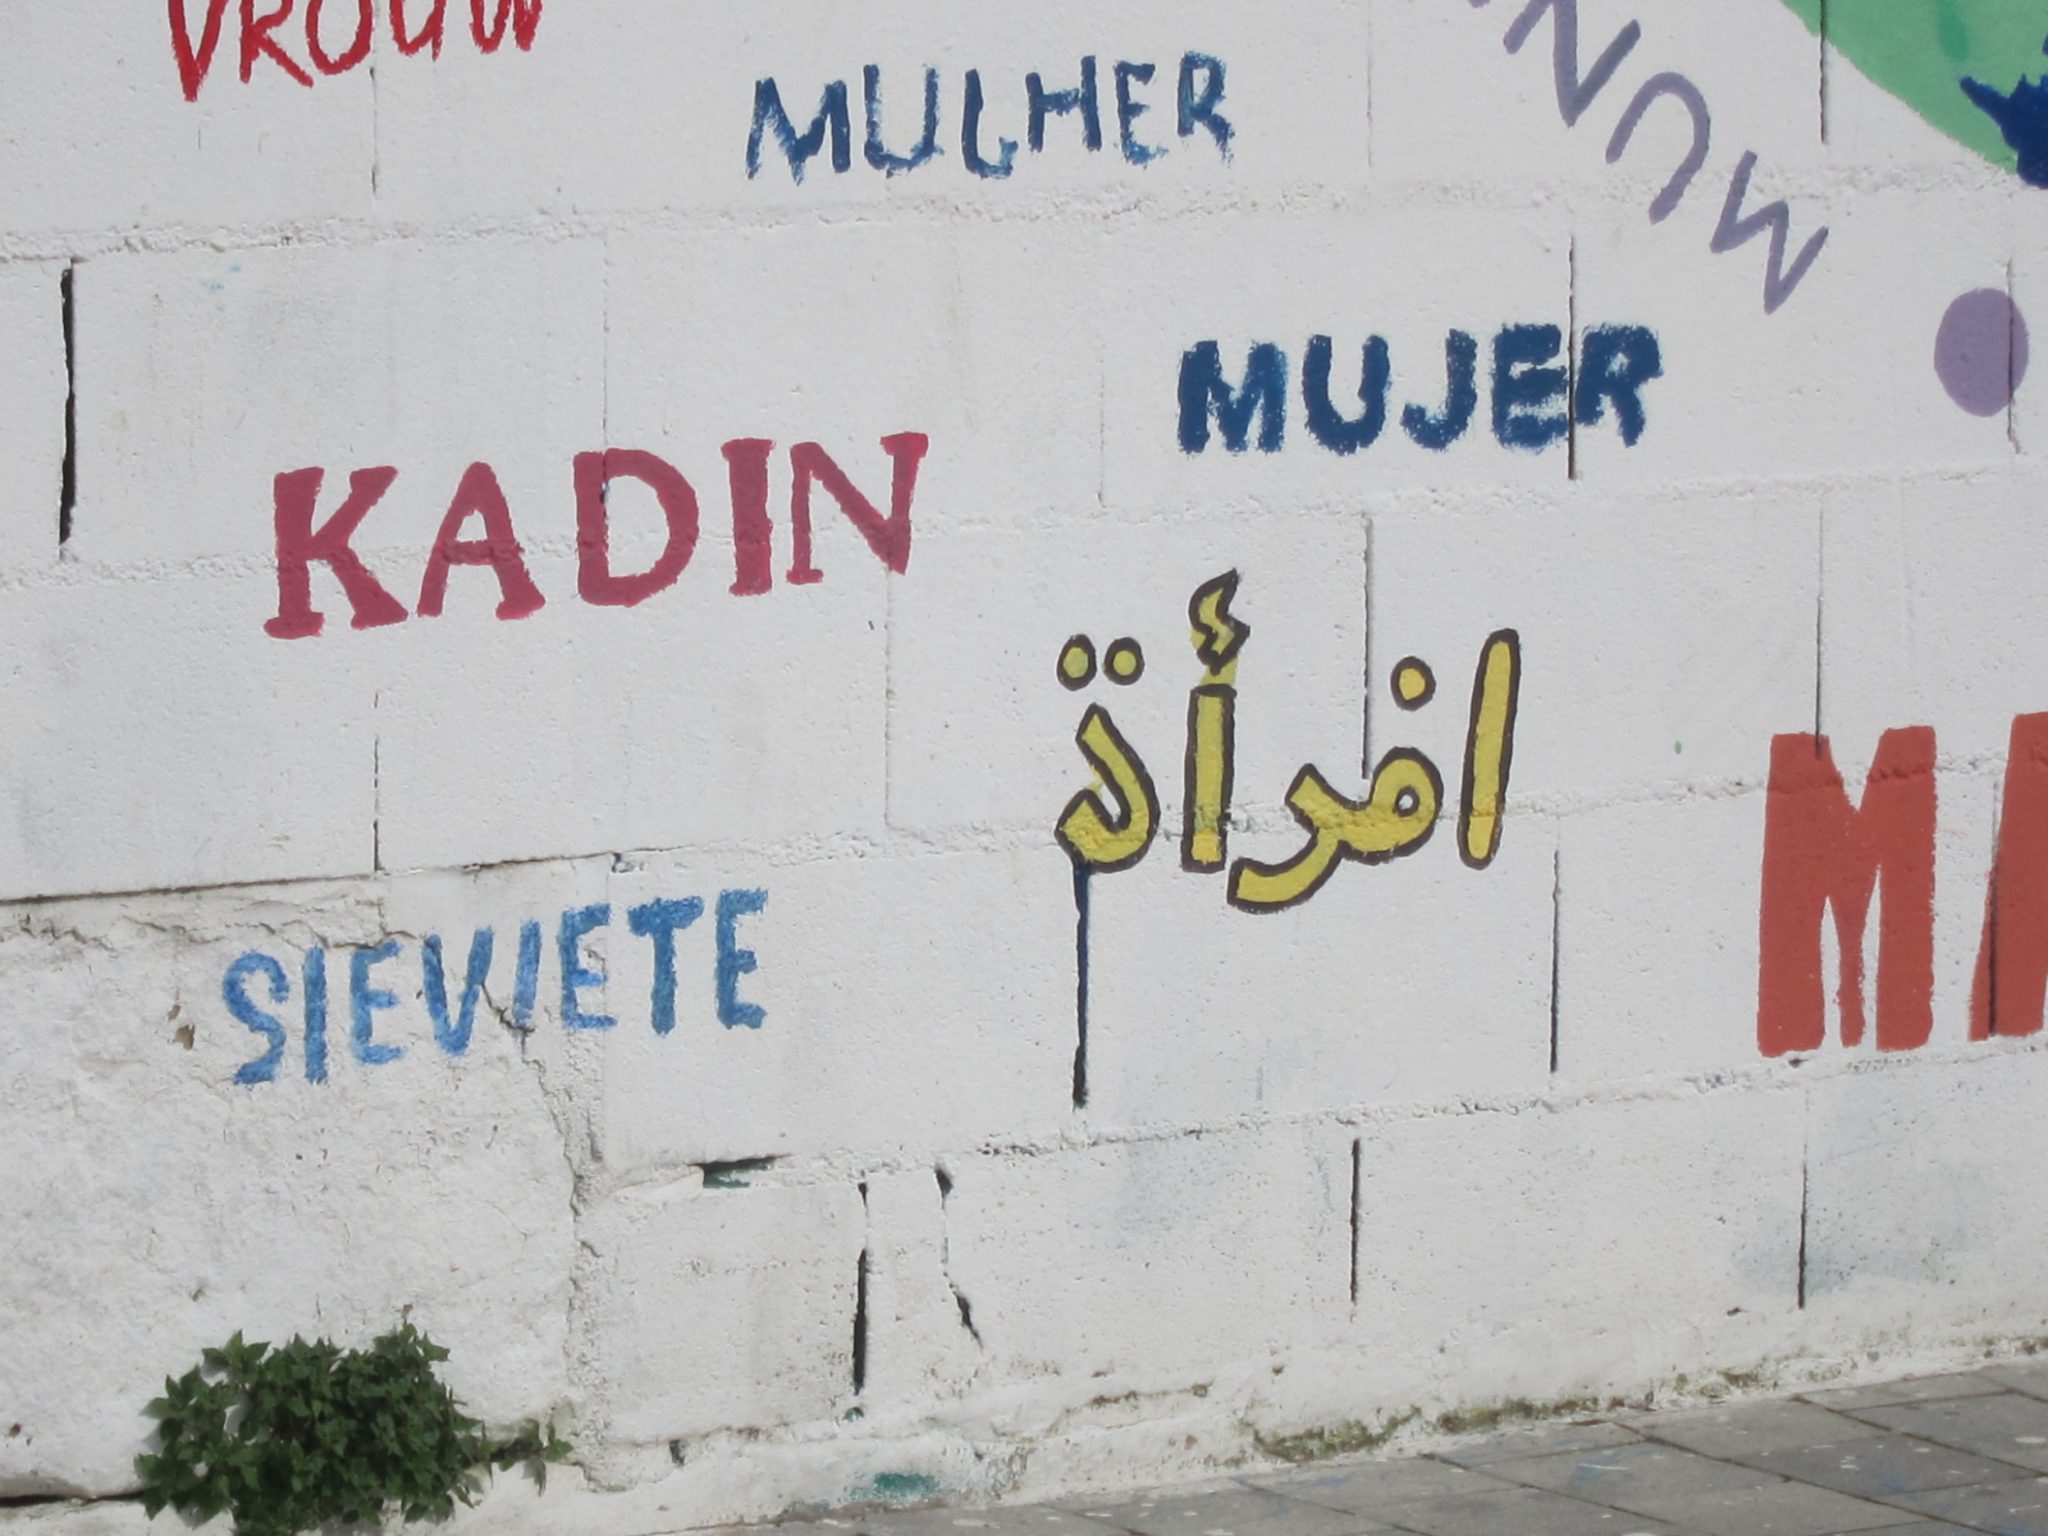 VROUW
MULHER
MUJER
KADIN
افرأة
SIEVIETE